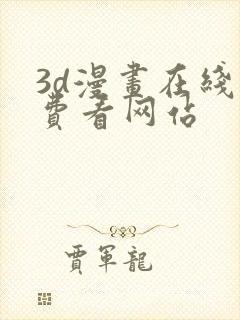 3d漫畫在綫
費看网佔
賈軍龍